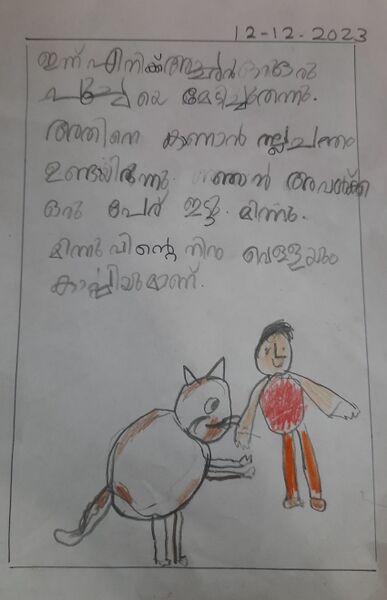 12-12-2023
ഇന്ന് എനിക്ക് അച്ഛൻ ഒരു
പൂച്ചയെ മേടിച്ചുതന്നു.
അതിനെ കാണാൻ നല്ല ചന്തം
ഉണ്ടായിരുന്നു. ഞാൻ അവൾക്ക്
ഒരു പേര് ഇട്ടു. മിന്നു.
മിന്നുവിന്റെ നിറം വെള്ളയും
കാപ്പിയുമാണ്.